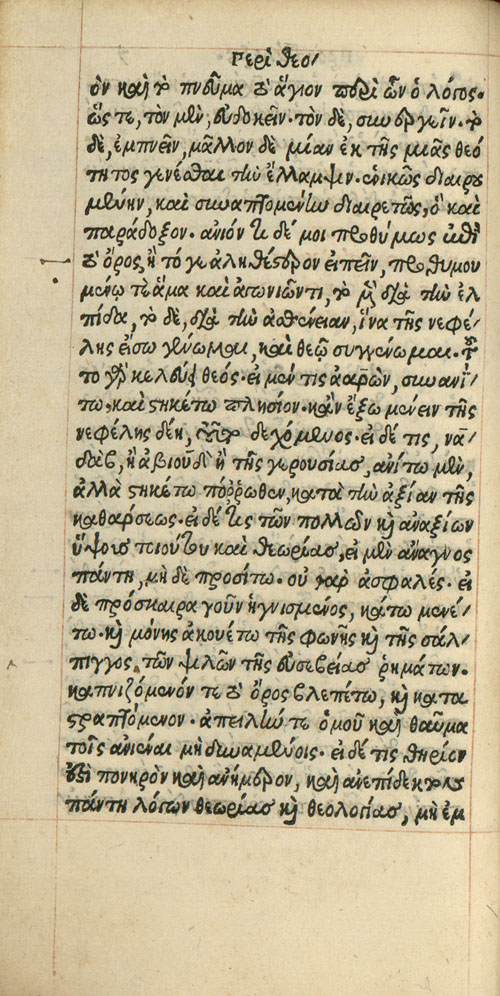 Περὶ θεο/
ὸν καὶ τὸ πνεῦμα τὸ ἅγιον περὶ ὧν ὁ λόγος.
ὥς τε, τὸν μὲν, εὐδοκεῖν. τὸν δὲ, συνεργεῖν. τὸ
δὲ, ἐμπνεῖν, μᾶλλον δὲ μίαν ἐκ τῆς μιᾶς θεό
τητος γενέσθαι τὴν ἔλλαμψιν. ἑνικῶς διαιρου
μένην, καὶ συναπτομένην διαιρετῶς, ὃ καὶ
παράδοξον. ἀνιόντι δέ μοι προθύμως ἐπὶ
τὸ ὄρος, ἢ τό γε ἀληθέστερον εἰπεῖν, προθυμου
μένῳ τε ἅμα καὶ ἀγωνιῶντι, τὸ μὲν διὰ τὴν ἐλ
πίδα, τὸ δὲ, διὰ τὴν ἀσθένειαν, ἵνα τῆς νεφέ/
λης εἴσω γένωμαι, καὶ θεῷ συγγένωμαι. τοῦ
το γὰρ κελεύει θεός. εἰ μέν τις ἀαρὼν, συνανί/
τω, καὶ στηκέτω πλησίον. κἂν ἔξω μένειν τῆς
νεφέλης δέῃ, τοῦτο δεχόμενος. εἰ δέ τις, να/
δὰβ, ἢ ἀβιοὺδ ἢ τῆς γερουσίας, ἀνίτω μὲν,
ἀλλὰ στηκέτω πόρρωθεν, κατὰ τὴν ἀξίαν τῆς
καθάρσεως. εἰ δέ τις τῶν πολλῶν καὶ ἀναξίων
ὕψους τοιούτου καὶ θεωρίας, εἰ μὲν ἄναγνος
πάντη, μὴ δὲ προσίτω. οὐ γὰρ ἀσφαλές. εἰ
δὲ πρόσκαιρα γοῦν ἡγνισμένος, κάτω μενέ/
τω. καὶ μόνης ἀκουέτω τῆς φωνῆς καὶ τῆς σάλ/
πιγγος, τῶν ψιλῶν τῆς εὐσεβείας ῥημάτων.
καπνιζόμενόν τε τὸ ὄρος βλεπέτω, καὶ κατα
στραπτόμενον. ἀπειλήν τε ὁμοῦ καὶ θαῦμα
τοῖς ἀνιέναι μὴ δυναμένοις. εἰ δέ τις θηρίον
ἐστὶ πονηρὸν καὶ ἀνήμερον, καὶ ἀνεπίδεκτον
πάντη λόγων θεωρίας καὶ θεολογίας, μὴ ἐμ